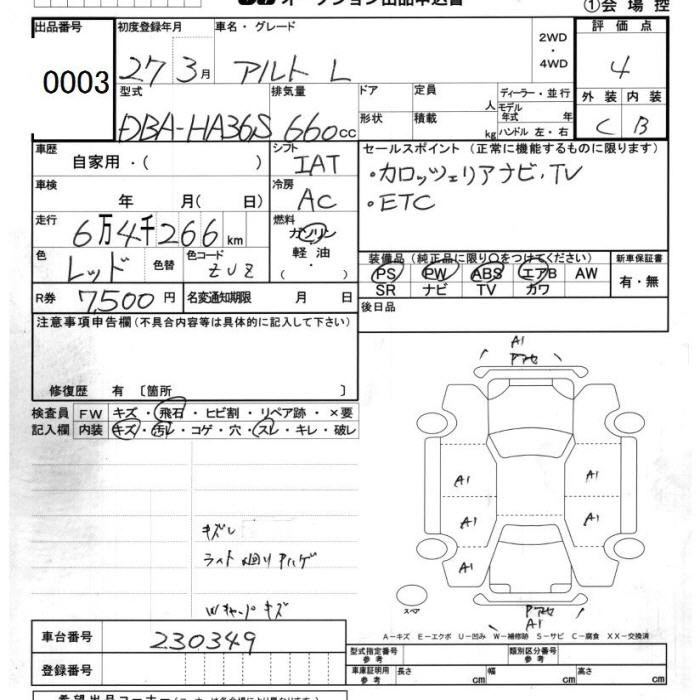 オークション出品申込書
①会場控
出品番号 初度登録年月 車名・グレード 2WD・4WD 評価点
0003 27 3月 アルト L 4
型式 排気量 ドア 定員 人 ディーラー・並行 外装 内装
DBA-HA36S 660cc 形状 積載 kg モデル年式 年 ハンドル 左・右 C B
車歴 自家用・( ) シフト IAT
セールスポイント(正常に機能するものに限ります)
・カロッツェリアナビ、TV
・ETC
車検 年 月( 日) 冷房 AC
走行 6万4千266km 燃料 ガソリン 軽油 ・( )
色 レッド 色替 色コード ZUZ
装備品(純正品に限り○をつけてください) 新車保証書
PS PW ABS エアB AW 有・無
SR ナビ TV カワ
R券 7,500円 名変通知期限 月 日 後日品
注意事項申告欄(不具合内容等は具体的に記入して下さい)
修復歴 有〔箇所 〕
検査員記入欄 FW キズ・飛石・ヒビ割・リペア跡・×要
内装 キズ・汚レ・コゲ・穴・スレ・キレ・破レ
A1
A1 A1
A1 A1
A1
キズレ
ライト廻り
キズ
スペア
A1
A-キズ E-エクボ U-凹み W-補修跡 S-サビ C-腐食 XX-交換済
車台番号 230349
型式指定番号 参考 類別区分番号 参考
登録番号 車庫証明用 参考 長さ cm 幅 cm 高さ cm
希望出品コーナー